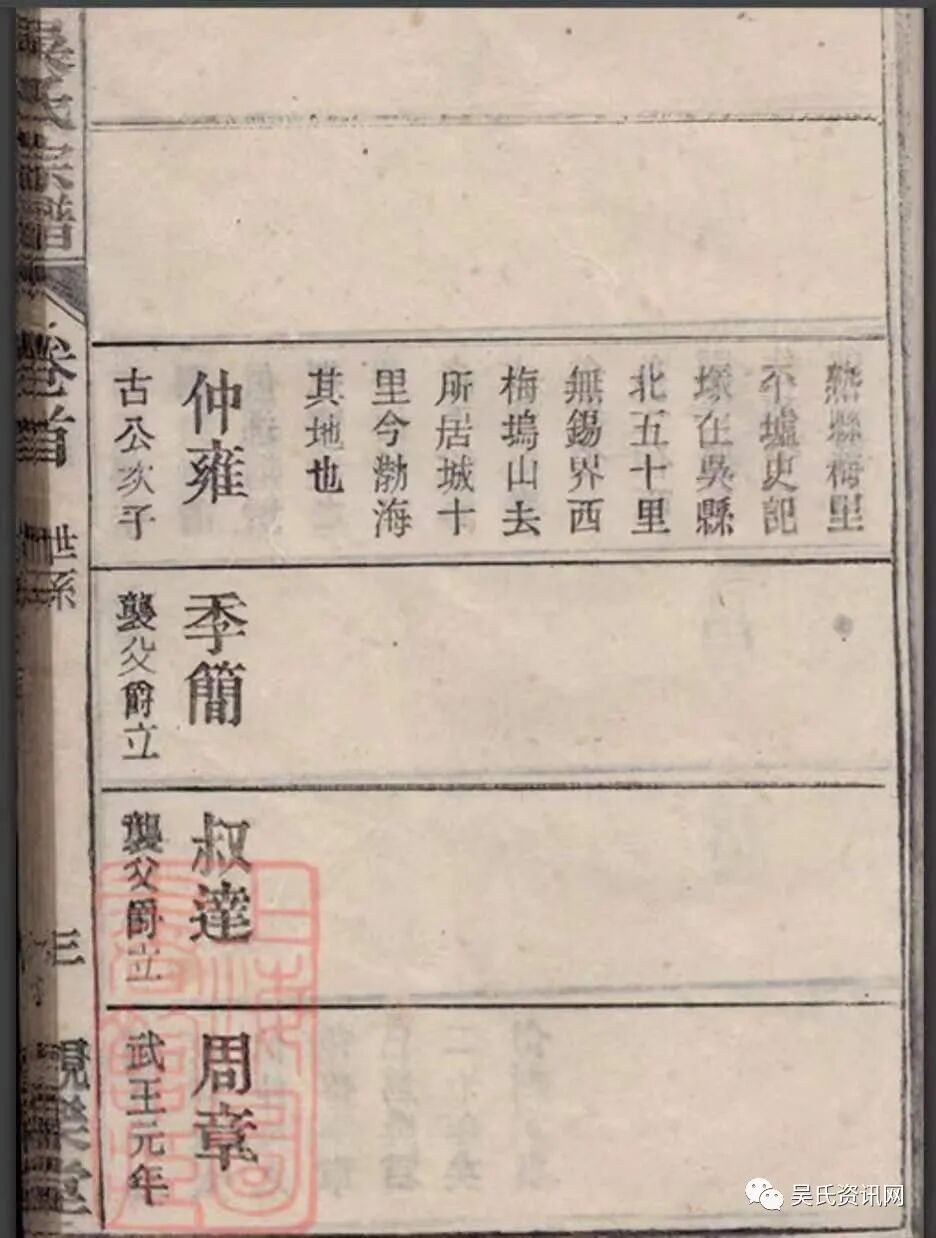 縣梅里
墟史記
塚在吳縣
北五十里
無錫界西
梅塢山去
所居城十
里今渤海
其地也
仲雍
古公次子
季簡
襲父爵立
叔達
襲父爵立
周章
武王元年
吳氏宗譜
卷首
世系
三
樂堂
吴氏资讯网